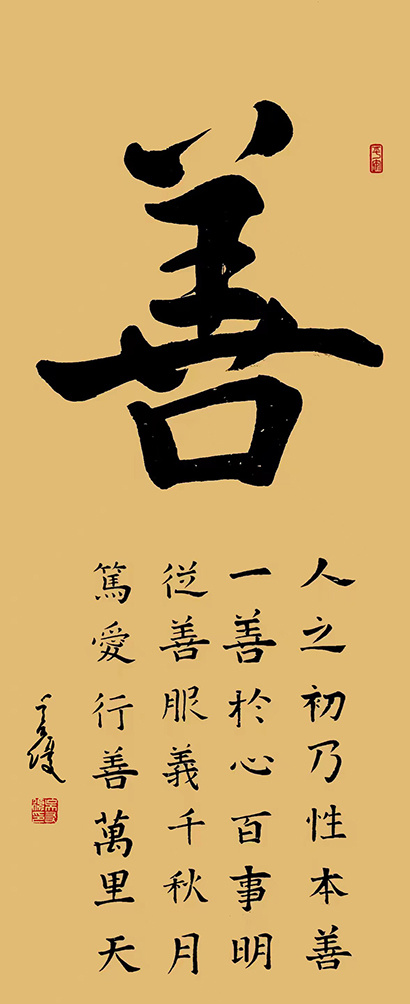 善
人之初乃性本善
一善於心百事明
從善服義千秋月
篤愛行善萬里天